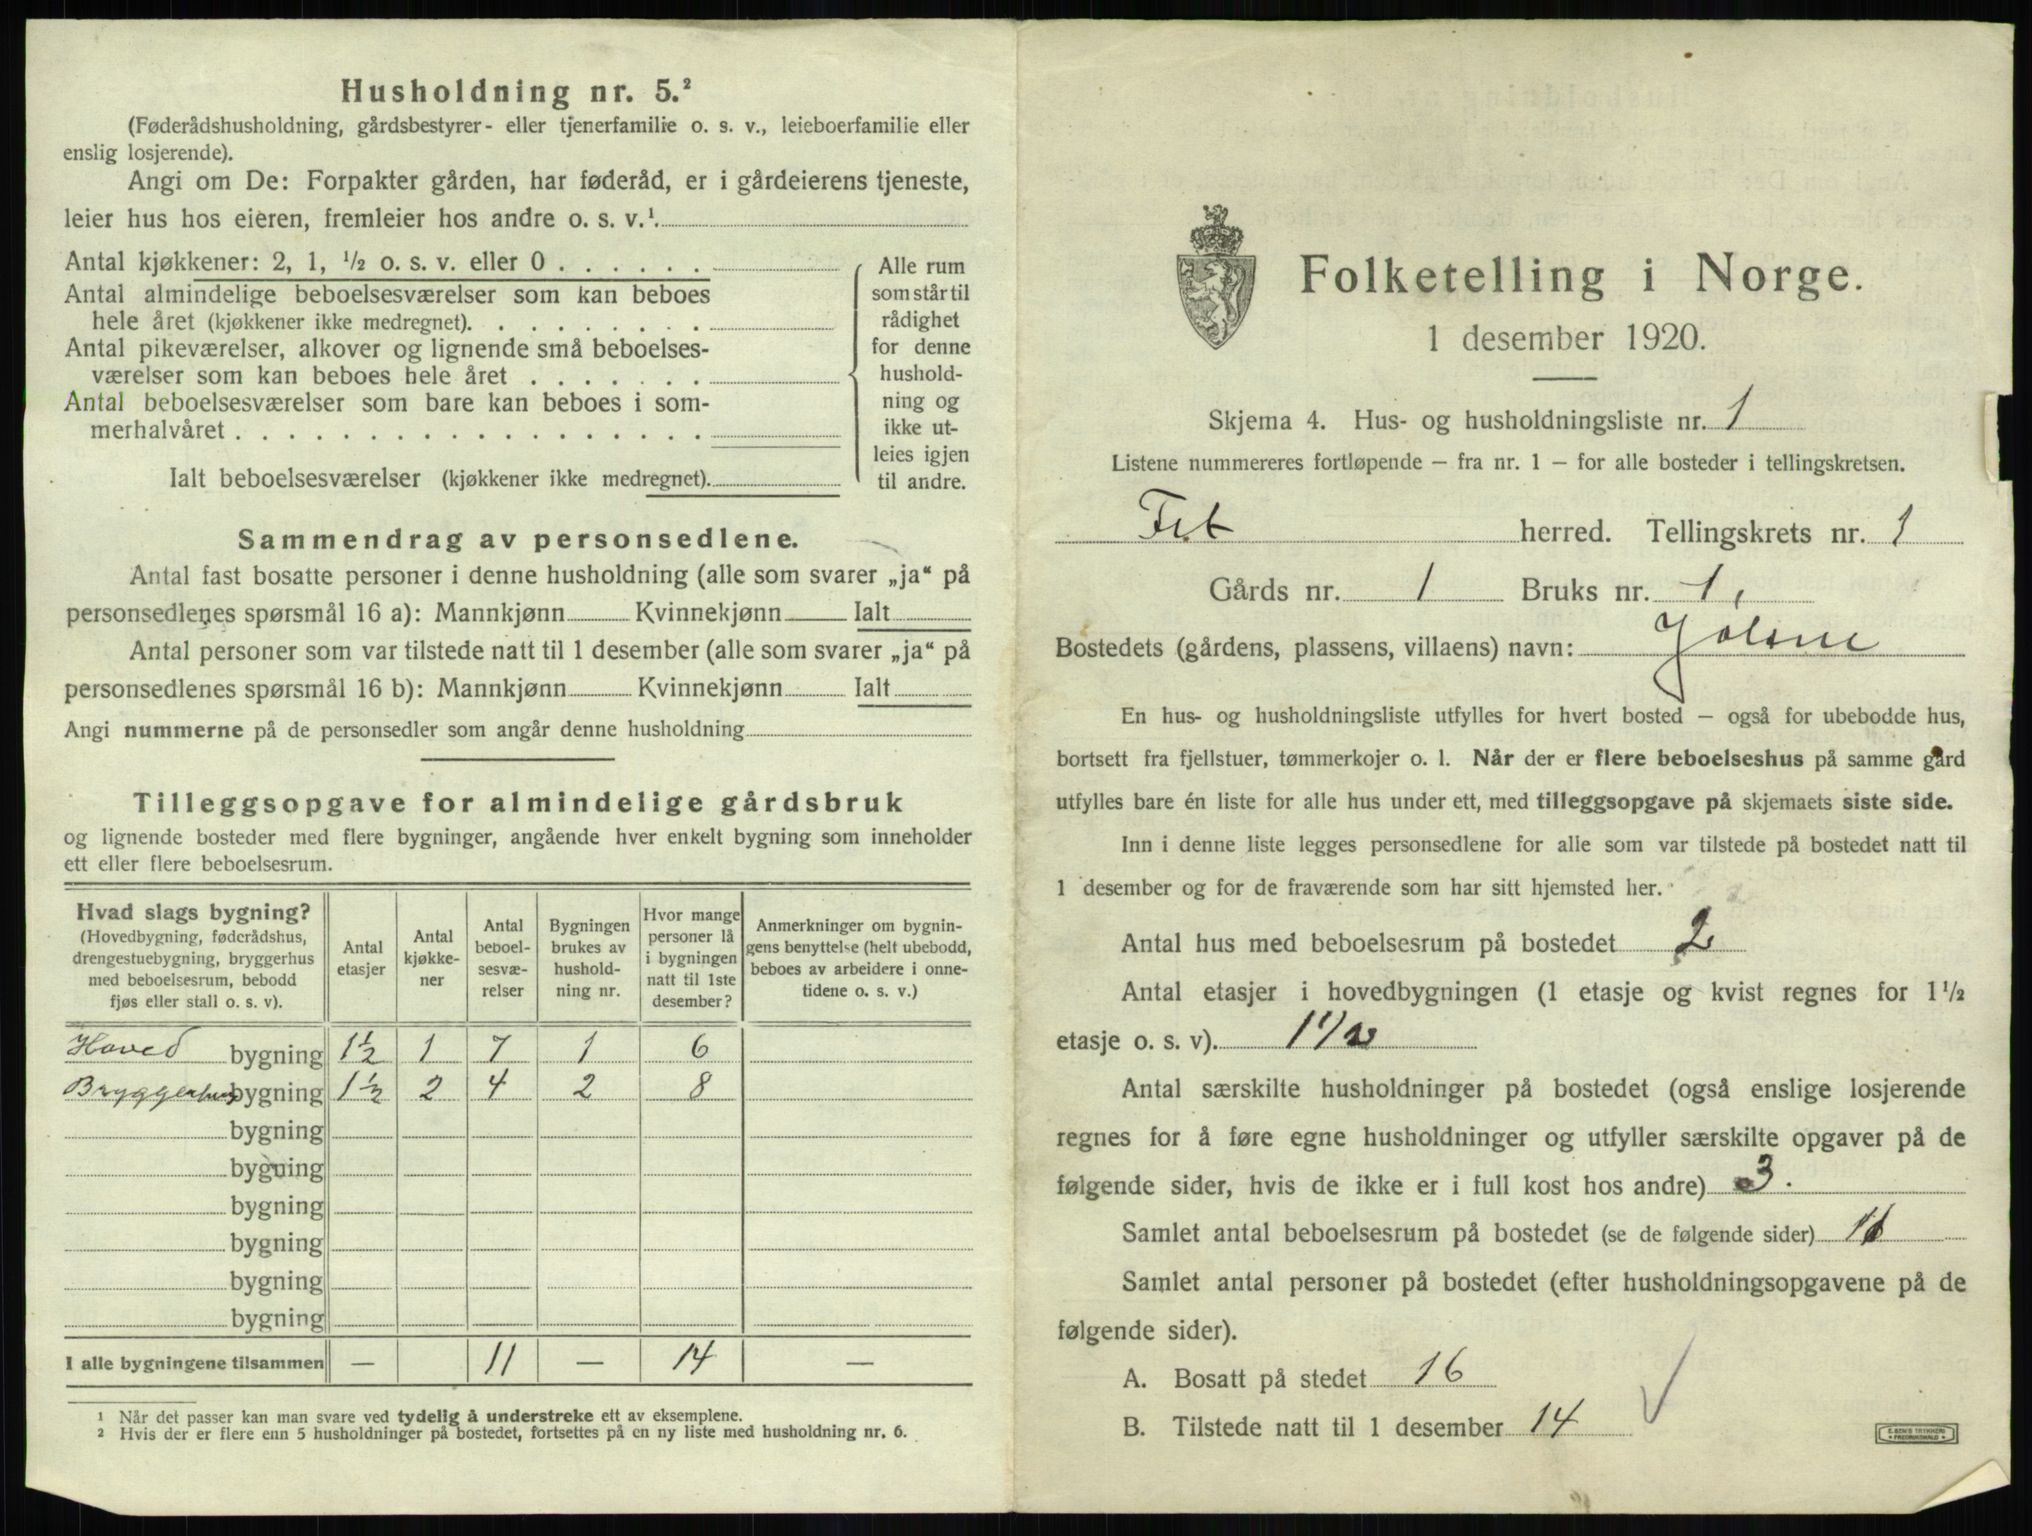 Husholdning nr. 5.²
(Føderådshusholdning, gårdsbestyrer- eller tjenerfamilie o. s. v., leieboerfamilie eller
enslig losjerende).
Angi om De: Forpakter gården, har føderåd, er i gårdeierens tjeneste,
leier hus hos eieren, fremleier hos andre o. s. v.¹
Antal kjøkkener: 2, 1, ½ o. s. v. eller 0 . . . . . .
Antal almindelige beboelsesværelser som kan beboes
hele året (kjøkkener ikke medregnet). . . . . . . . .
Antal pikeværelser, alkover og lignende små beboelses-
værelser som kan beboes hele året . . . . . . .
Antal beboelsesværelser som bare kan beboes i som-
merhalvåret . . . . . . . . . . . . . . . . . .
Ialt beboelsesværelser (kjøkkener ikke medregnet).
Alle rum
som står til
rådighet
for denne
hushold-
ning og
ikke ut-
leies igjen
til andre.
Sammendrag av personsedlene.
Antal fast bosatte personer i denne husholdning (alle som svarer „ja“ på
personsedlenes spørsmål 16 a): Mannkjønn Kvinnekjønn Ialt
Antal personer som var tilstede natt til 1 desember (alle som svarer „ja“ på
personsedlenes spørsmål 16 b): Mannkjønn Kvinnekjønn Ialt
Angi nummerne på de personsedler som angår denne husholdning
Tilleggsopgave for almindelige gårdsbruk
og lignende bosteder med flere bygninger, angående hver enkelt bygning som inneholder
ett eller flere beboelsesrum.
Hvad slags bygning?
(Hovedbygning, føderådshus,
drengestuebygning, bryggerhus
med beboelsesrum, bebodd
fjøs eller stall o. s. v).
Antal
etasjer
Antal
kjøkke-
ner
Antal
beboel-
sesvæ-
relser
Bygningen
brukes av
hushold-
ning nr.
Hvor mange
personer lå
i bygningen
natt til 1ste
desember?
Anmerkninger om bygnin-
gens benyttelse (helt ubebodd,
beboes av arbeidere i onne-
tidene o. s. v.)
Hoved bygning 1½ 1 7 1 6
Bryggerhus bygning 1½ 2 4 2 8
bygning
bygning
bygning
bygning
bygning
bygning
I alle bygningene tilsammen — 11 — 14 —
¹ Når det passer kan man svare ved tydelig å understreke ett av eksemplene.
² Hvis der er flere enn 5 husholdninger på bostedet, fortsettes på en ny liste med husholdning nr. 6.
Folketelling i Norge.
1 desember 1920.
Skjema 4. Hus- og husholdningsliste nr. 1
Listene nummereres fortløpende – fra nr. 1 – for alle bosteder i tellingskretsen.
Fet herred. Tellingskrets nr. 1
Gårds nr. 1 Bruks nr. 1,
Bostedets (gårdens, plassens, villaens) navn: Jølsne
En hus- og husholdningsliste utfylles for hvert bosted – også for ubebodde hus,
bortsett fra fjellstuer, tømmerkojer o. l. Når der er flere beboelseshus på samme gård
utfylles bare én liste for alle hus under ett, med tilleggsopgave på skjemaets siste side.
Inn i denne liste legges personsedlene for alle som var tilstede på bostedet natt til
1 desember og for de fraværende som har sitt hjemsted her.
Antal hus med beboelsesrum på bostedet 2
Antal etasjer i hovedbygningen (1 etasje og kvist regnes for 1½
etasje o. s. v). 1½
Antal særskilte husholdninger på bostedet (også enslige losjerende
regnes for å føre egne husholdninger og utfyller særskilte opgaver på de
følgende sider, hvis de ikke er i full kost hos andre) 3.
Samlet antal beboelsesrum på bostedet (se de følgende sider) 11
Samlet antal personer på bostedet (efter husholdningsopgavene på de
følgende sider).
A. Bosatt på stedet 16
B. Tilstede natt til 1 desember 14
E. SEM'S TRYKKERI
FREDRIKSHALD